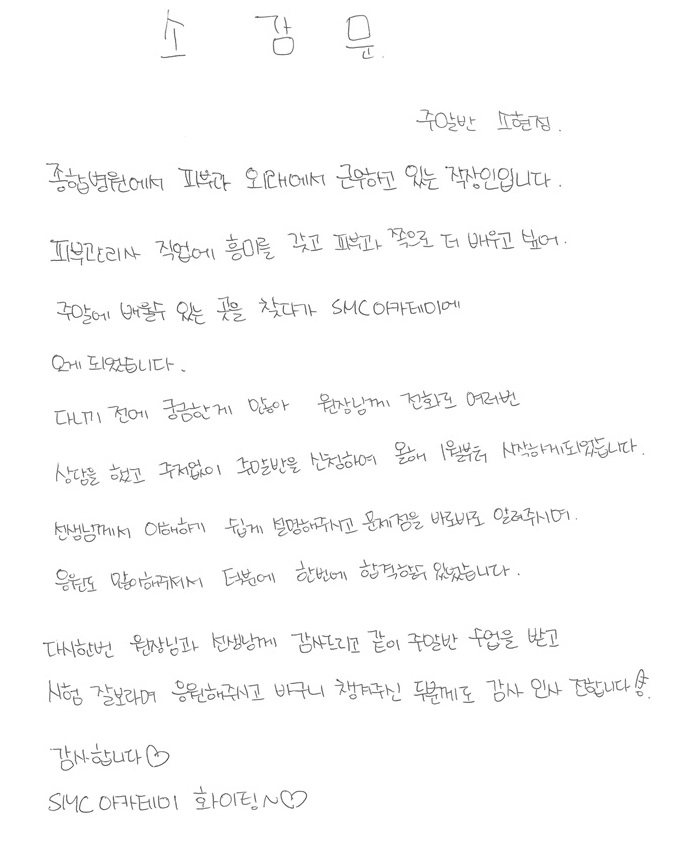 소 감 문.
주말반 소현정.
종합병원에서 피부과 외래에서 근무하고 있는 직장인입니다.
피부관리사 직업에 흥미를 갖고 피부과 쪽으로 더 배우고 싶어.
주말에 배울수 있는 곳을 찾다가 SMC아카데미에
오게 되었습니다.
다니기 전에 궁금한게 많아 원장님께 전화로 여러번
상담을 했고 주저없이 주말반을 신청하여 올해 1월부터 시작하게되었습니다.
선생님께서 이해하기 쉽게 설명해주시고 문제점을 바로바로 알려주시며.
응원도 많이해주셔서 덕분에 한번에 합격할수 있었습니다.
다시한번 원장님과 선생님께 감사드리고 같이 주말반 수업을 받고
시험 잘보라며 응원해주시고 바구니 챙겨주신 두분께도 감사 인사 전합니다.
감사합니다♡
SMC아카데미 화이팅~♡